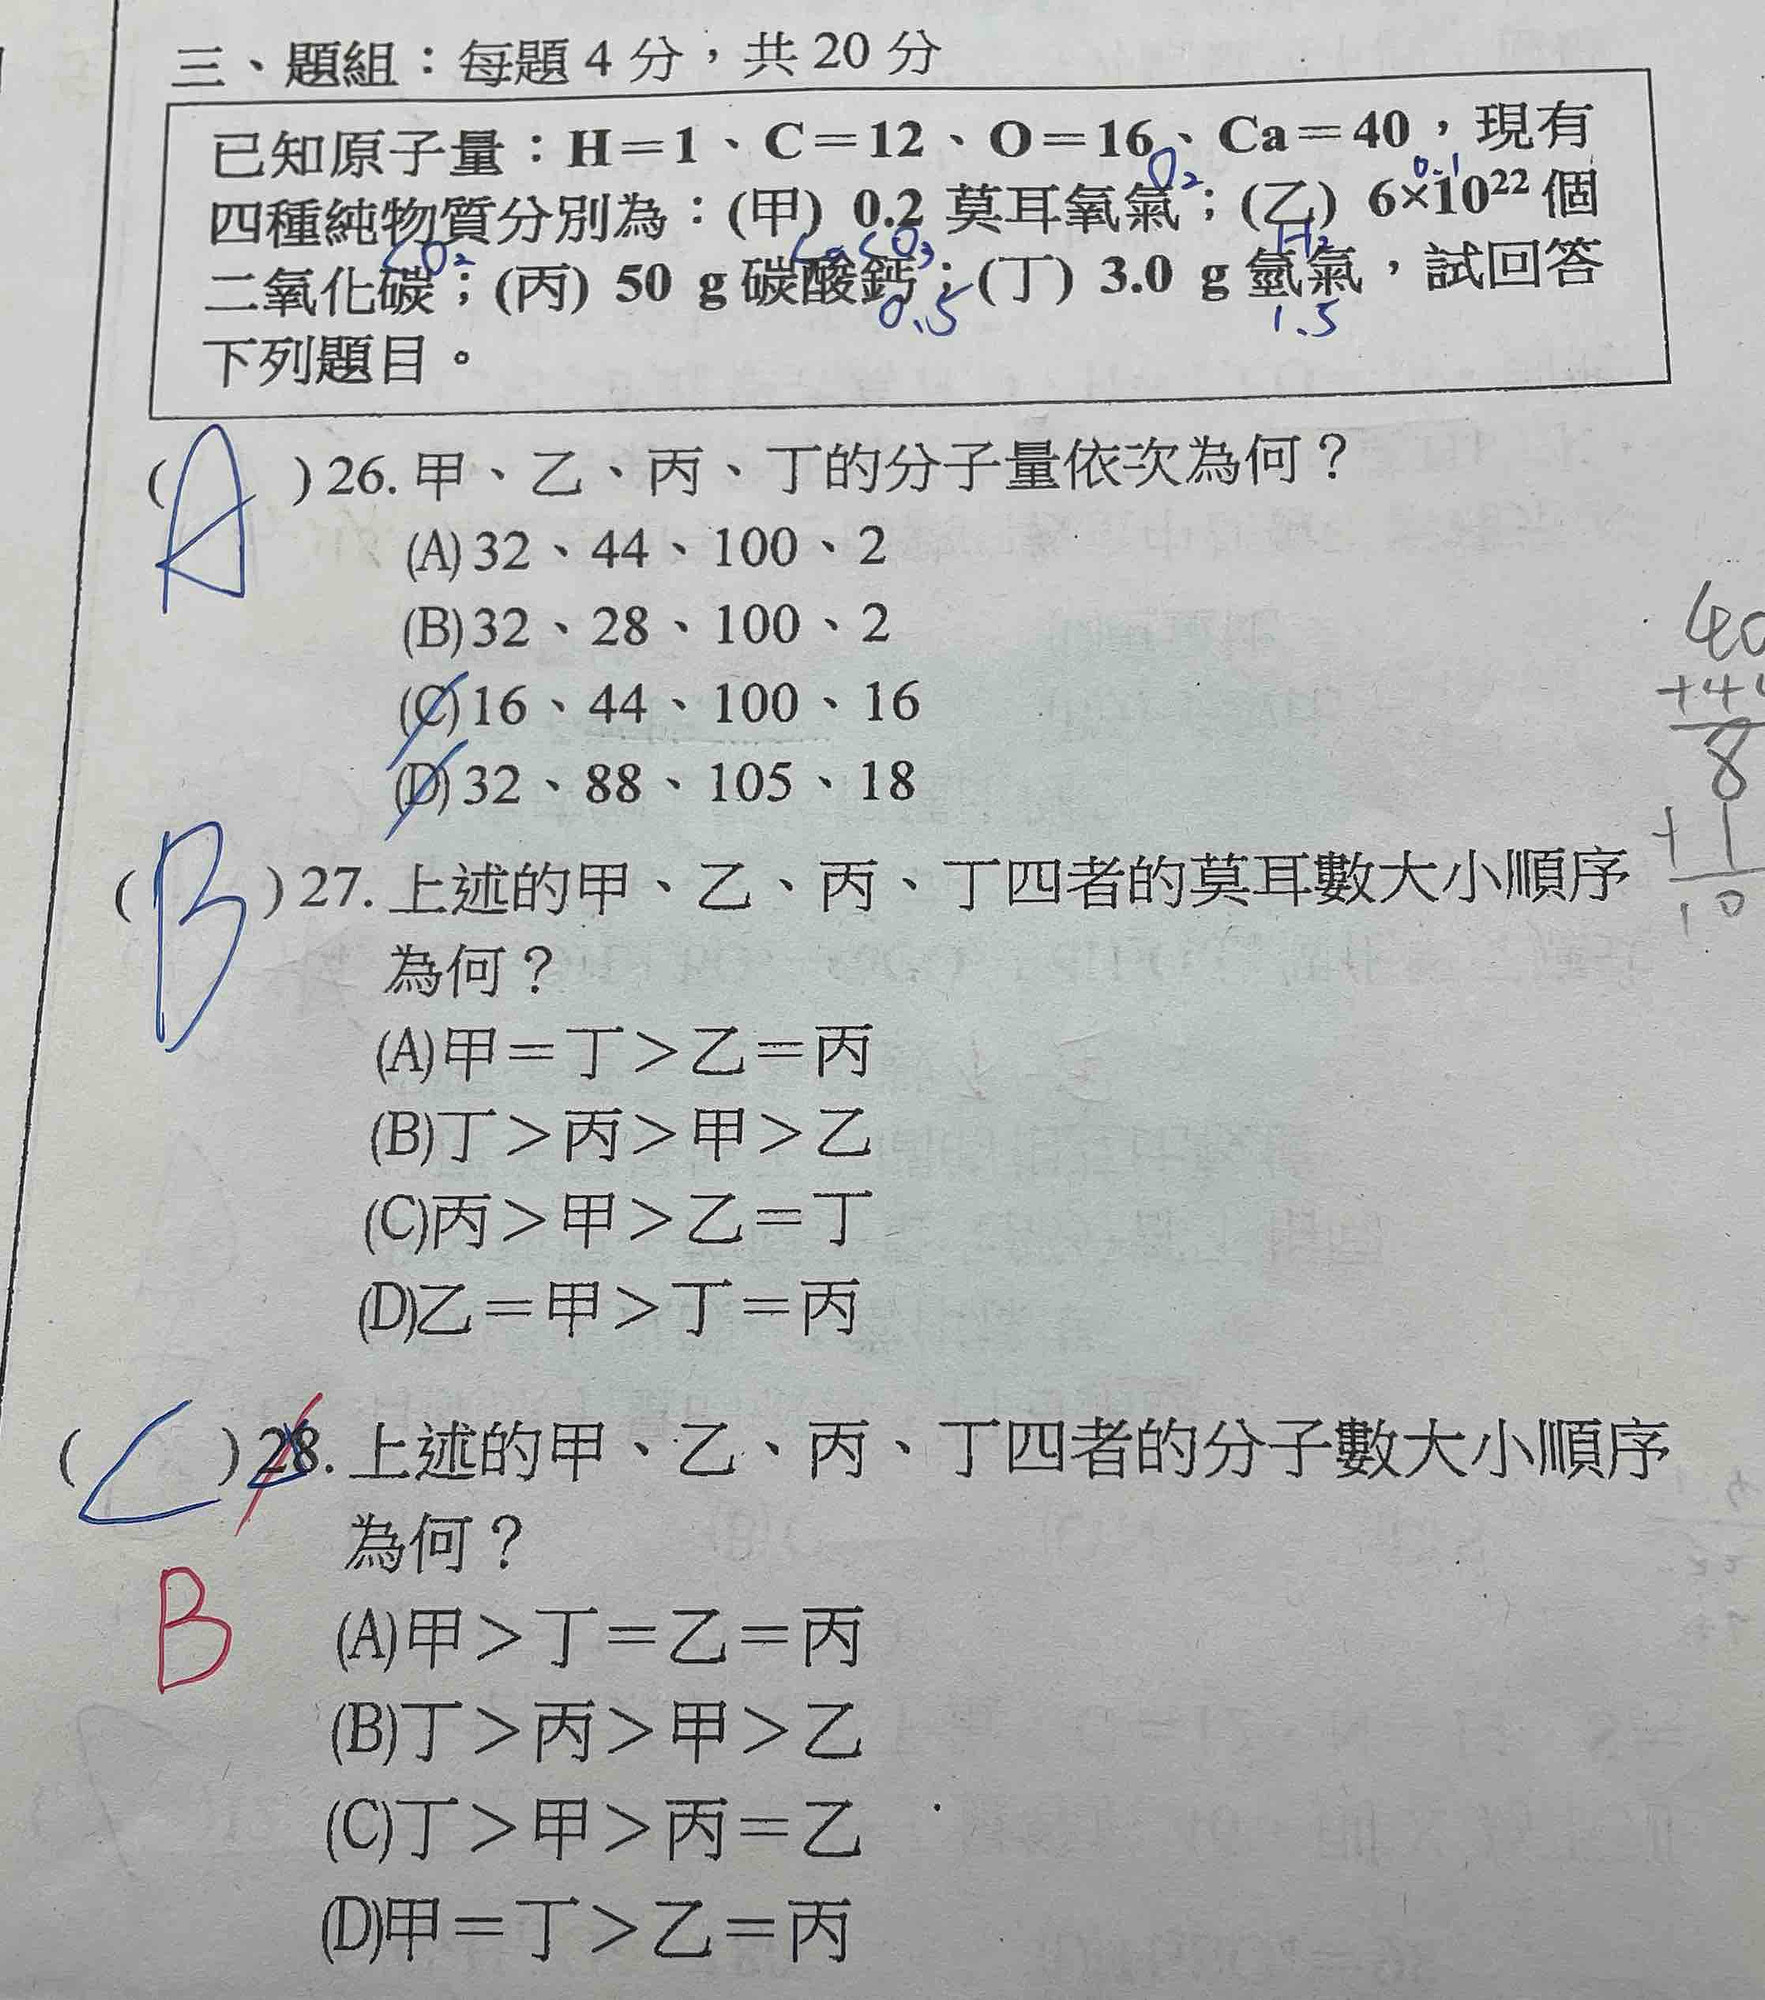 三、題組：每題 4 分，共 20 分
已知原子量：H＝1、C＝12、O＝16、Ca＝40，現有
O₂ 0.1
四種純物質分別為：(甲) 0.2 莫耳氧氣；(乙) 6×10²² 個
CO₂ CaCO₃ H₂
二氧化碳；(丙) 50 g 碳酸鈣；(丁) 3.0 g 氫氣，試回答
0.5 1.5
下列題目。
(A) 26. 甲、乙、丙、丁的分子量依次為何？
(A) 32、44、100、2
(B) 32、28、100、2
(C) 16、44、100、16
(D) 32、88、105、18
40
+44
8
+1
10
(B) 27. 上述的甲、乙、丙、丁四者的莫耳數大小順序
為何？
(A)甲＝丁＞乙＝丙
(B)丁＞丙＞甲＞乙
(C)丙＞甲＞乙＝丁
(D)乙＝甲＞丁＝丙
(C) 28. 上述的甲、乙、丙、丁四者的分子數大小順序
為何？
B
(A)甲＞丁＝乙＝丙
(B)丁＞丙＞甲＞乙
(C)丁＞甲＞丙＝乙
(D)甲＝丁＞乙＝丙